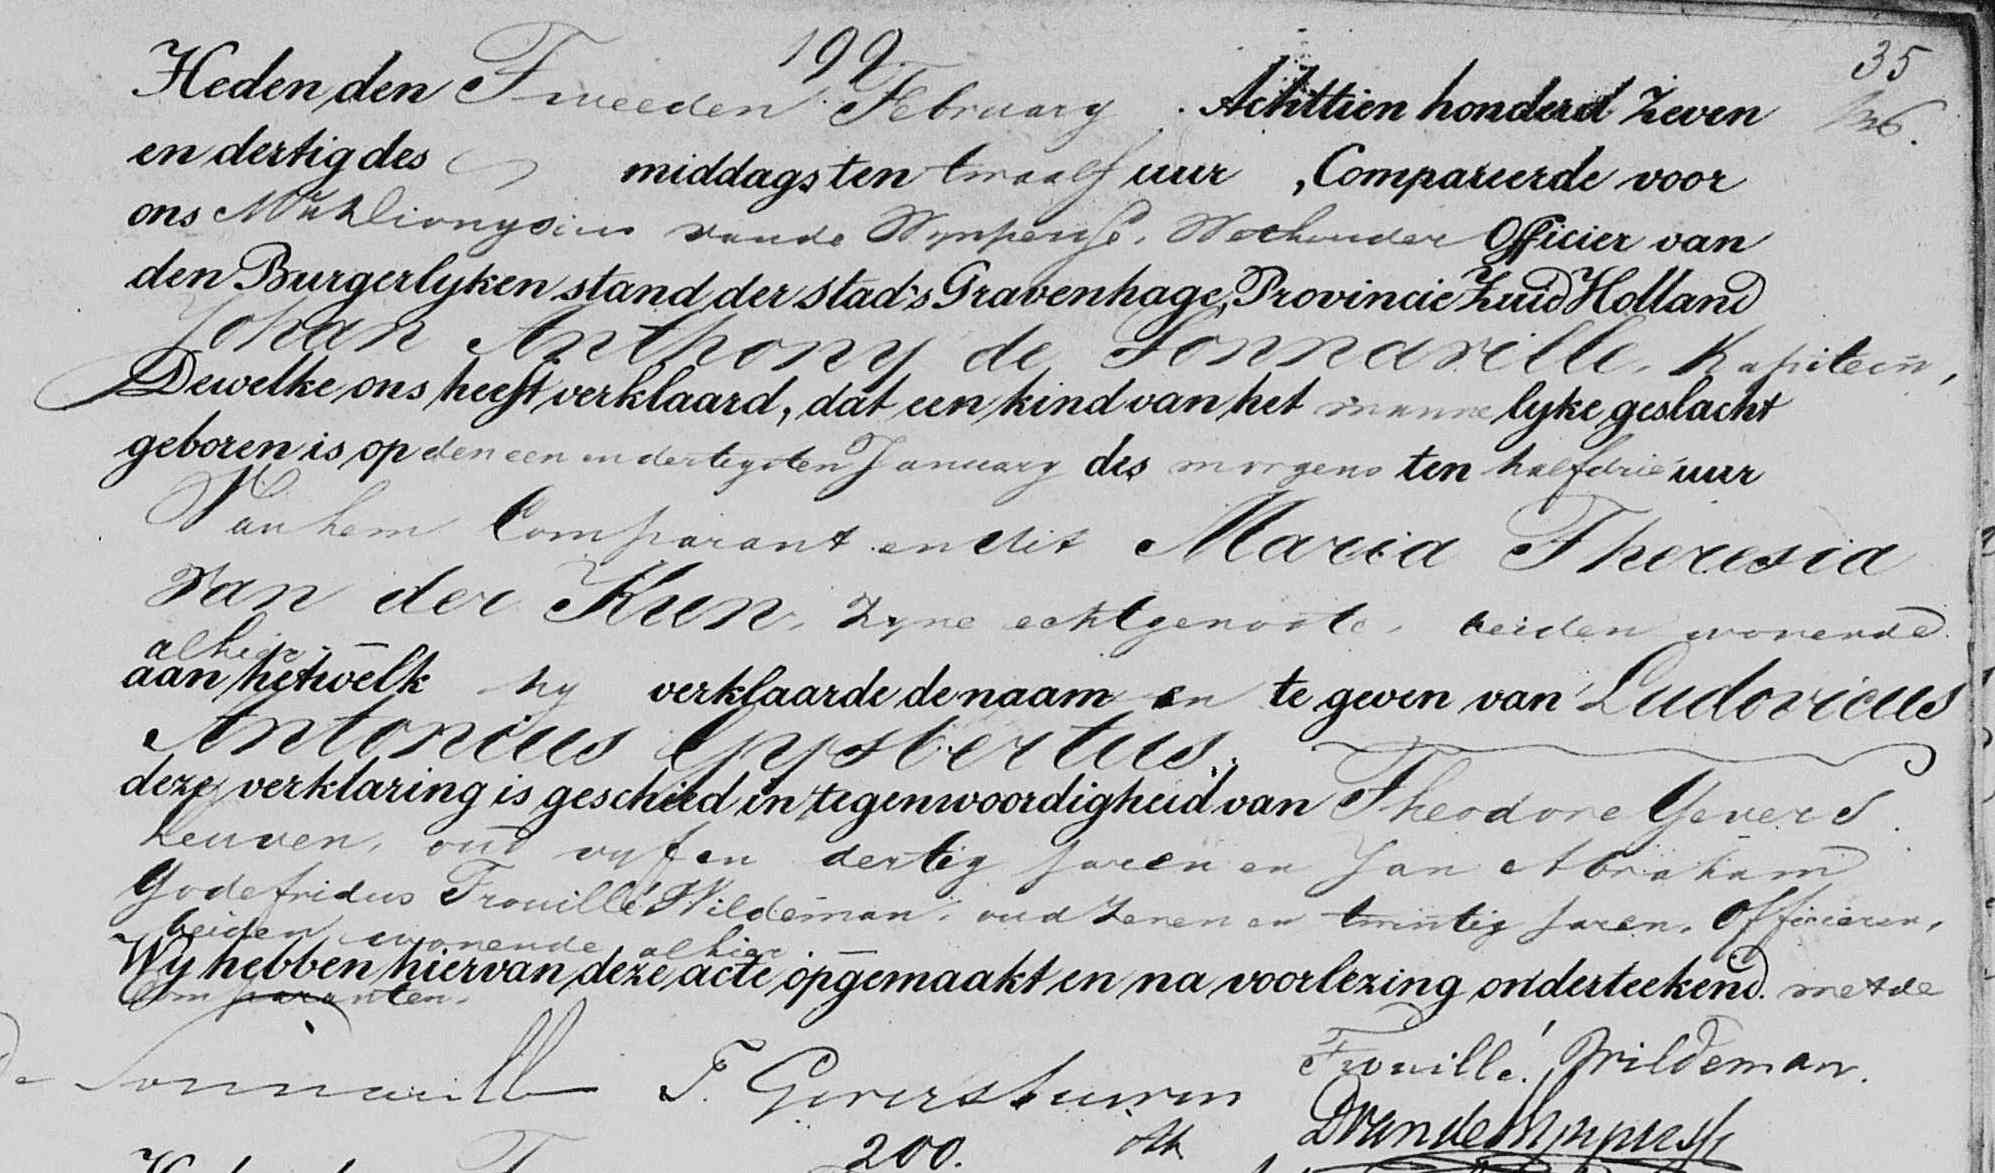 199.
35
Heden den Tweeden February Achttien honderd Zeven
en dertig des middags ten twaalf uur, Compareerde voor
ons Dionysius vande Wynpersse, Wethouder Officier van
den Burgerlyken stand der stad 's Gravenhage, Provincie Zuid Holland
Johan Anthony de Sonnaville, Kapitein,
Dewelke ons heeft verklaard, dat een kind van het mannelyke geslacht
geboren is op den een en dertigsten January des morgens ten half drie uur
Van hem Comparant en uit Maria Theresia
Van der Kun, Zyne echtgenoote, beiden wonende
alhier.
aan hetwelk hy verklaarde de naamen te geven van Ludovicus
Antonius Gysbertus.
deze verklaring is geschied in tegenwoordigheid van Theodore Gevers
Leuven, oud vyf en dertig jaren en Jan Abraham
Godefridus Trouillé Wildeman, oud zeven en twintig jaren, Officieren,
beiden wonende alhier
Wy hebben hiervan deze acte opgemaakt en na voorlezing onderteekend. met de
Comparanten.
de Sonnaville F. Trouillé Wildeman.
200.